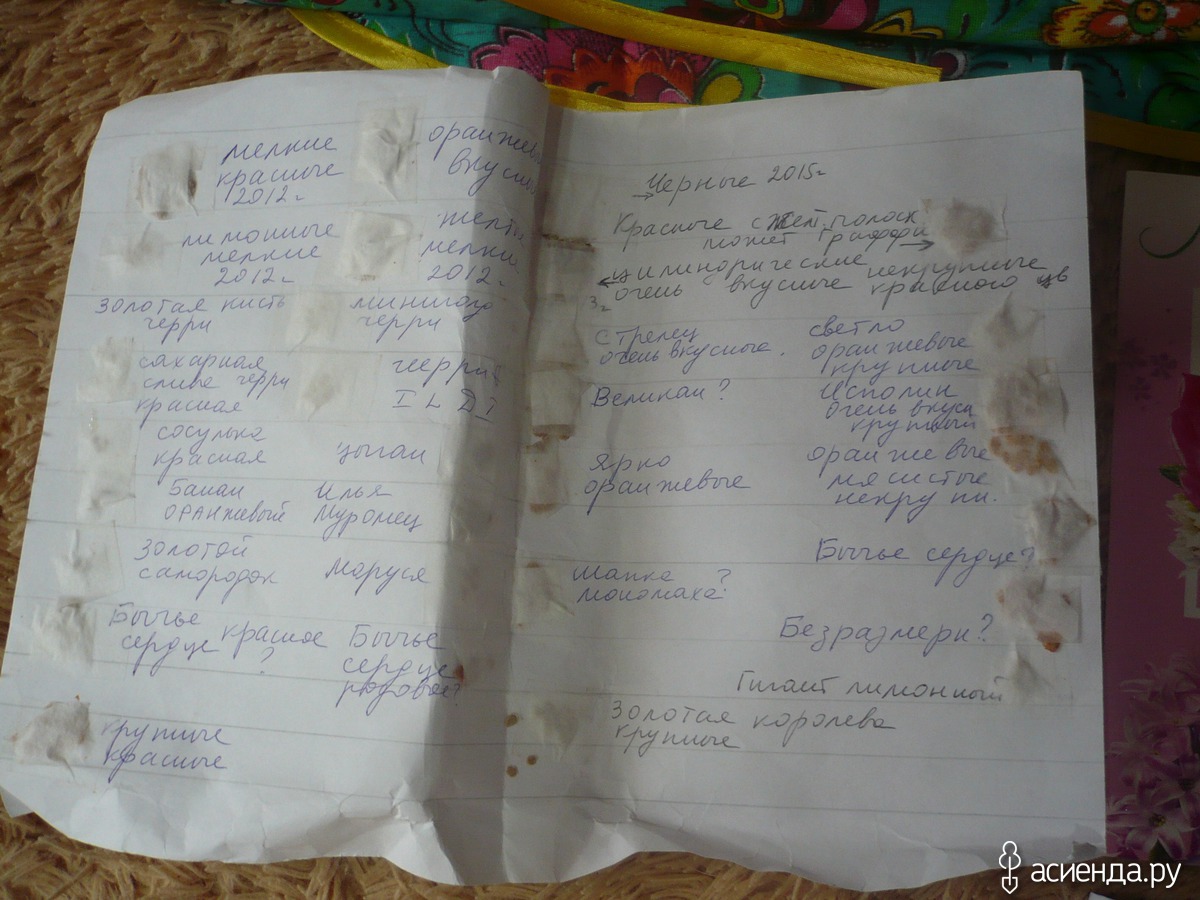 мелкие
красные
2012г
оранжев
вкусн
лимонные
мелкие
2012г.
желт
мелки
2012г.
золотая кисть
черри
черри
сахарная
слива черри
красная
черри
I L D I
сосулька
красная
цыган
Банан
оранжевый
Илья
Муромец
Золотой
самородок
Маруся
Бычье
сердце красное
?
Бычье
сердце
розовое?
крупные
красные
Черные 2015г
Красные с жёлт. полоск
может граффи
цилиндрические некрупные
очень вкусные красного цв
стрелец
очень вкусные.
светло
оранжевые
крупные
Великан?
Исполин
очень вкусн
крупный
Ярко
оранжевые
оранжевые
мясистые
некрупн.
Бычье сердце?
шапка
мономаха?
Безразмерн?
Гигант лимонный
Золотая королева
крупные
асиенда.ру